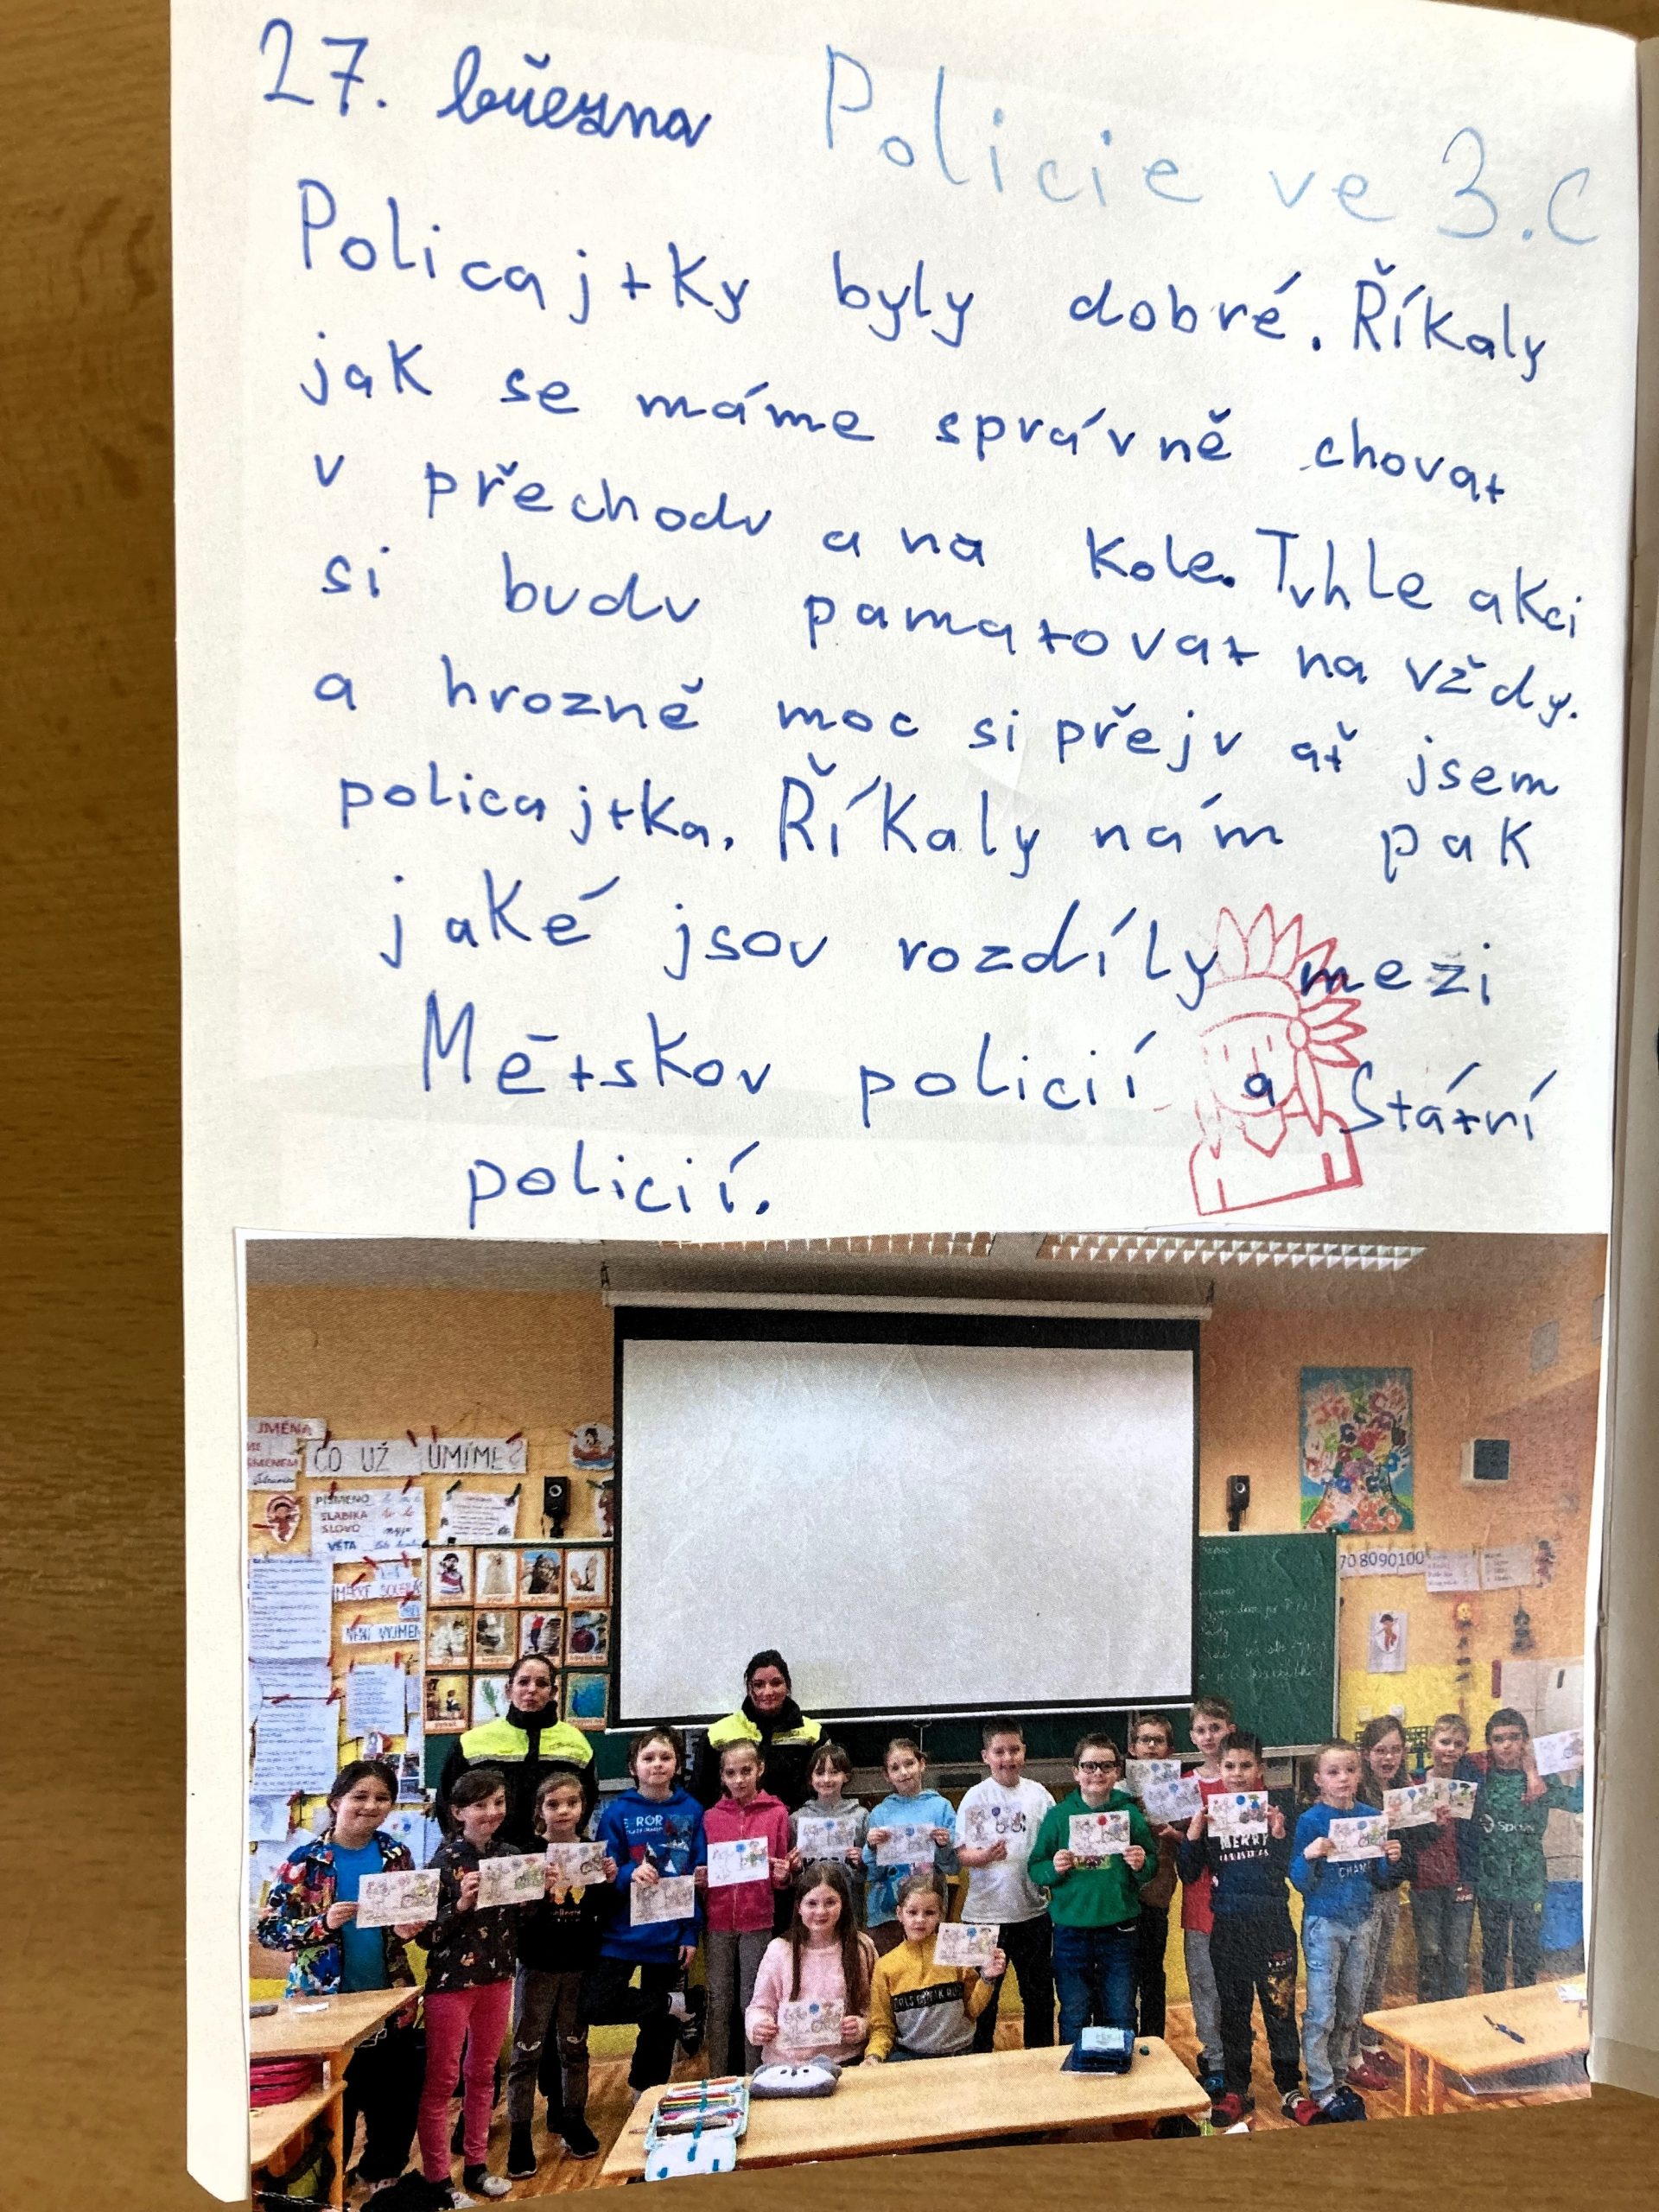 27. března Policie ve 3.C
Policajtky byly dobré. Říkaly
jak se máme správně chovat
v přechodu a na kole. Tuhle akci
si budu pamatovat na vždy.
a hrozně moc si přeju ať jsem
policajtka. Říkaly nám pak
jaké jsou rozdíly mezi
Mětskou policií a Státní
policií.
JMÉNA
CO UŽ UMÍME?
PÍSMENO
SLABIKA
SLOVO
VĚTA
70 80 90 100
MERRY